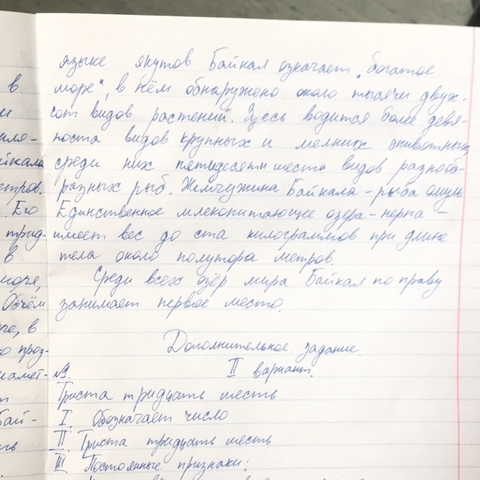 языке якутов Байкал означает „богатое
море", в нём обнаружено около тысячи двух-
сот видов растений. Здесь водится более девя-
носта видов крупных и мелких животных,
среди них пятидесяти шести видов разнооб-
разных рыб. Жемчужина Байкала - рыба омуль
Единственное млекопитающее озера - нерпа -
имеет вес до ста килограммов при длине
тела около полутора метров.
Среди всех озёр мира Байкал по праву
занимает первое место.
Дополнительное задание.
II вариант.
№1.
Триста тридцать шесть
I. Обозначает число
II. Триста тридцать шесть
III. Постоянные признаки:
в
м
йкала
етров.
Его
трид-
в
море,
Объём
че, в
о през-
иамет-
т
Бай-
ть